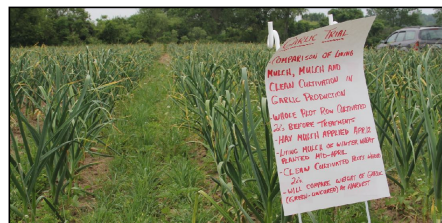 GARLIC TRIAL
COMPARISON OF LIVING
MULCH, MULCH AND
CLEAN CULTIVATION IN
GARLIC PRODUCTION
- WHOLE PLOT ROW CULTIVATED
2X BEFORE TREATMENTS
- HAY MULCH APPLIED APR. 12
- LIVING MULCH OF WINTER WHEAT
PLANTED MID-APRIL
- CLEAN CULTIVATED PLOTS HOED
2X
- WILL COMPARE WEIGHT OF GARLIC
AT HARVEST